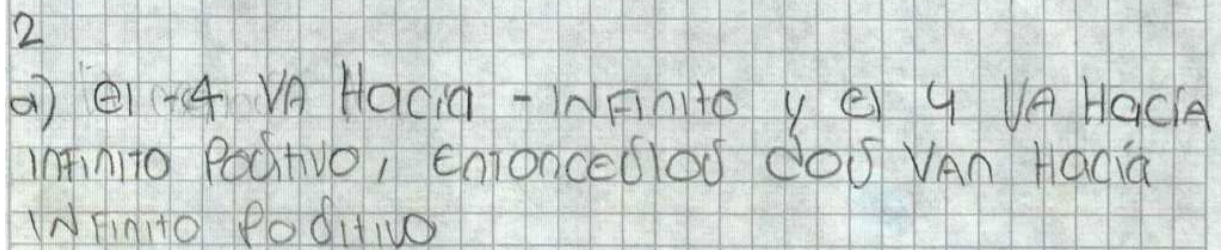 2
a) el -4 VA Hacia - INFinito y el 4 VA HaciA
infinito Positivo, Entonces los dos VAn Hacia
INFinito Positivo